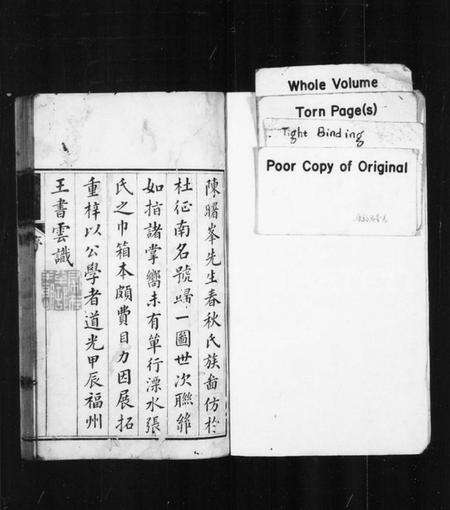 陳曙峯先生春秋氏族圖仿於
杜征南名號歸一圖世次聯貫
如指諸掌嚮未有單行溧水張
氏之巾箱本頗費目力因展拓
重梓以公學者道光甲辰福州
王書雲識
Whole Volume
Torn Page(s)
Tight Binding
Poor Copy of Original